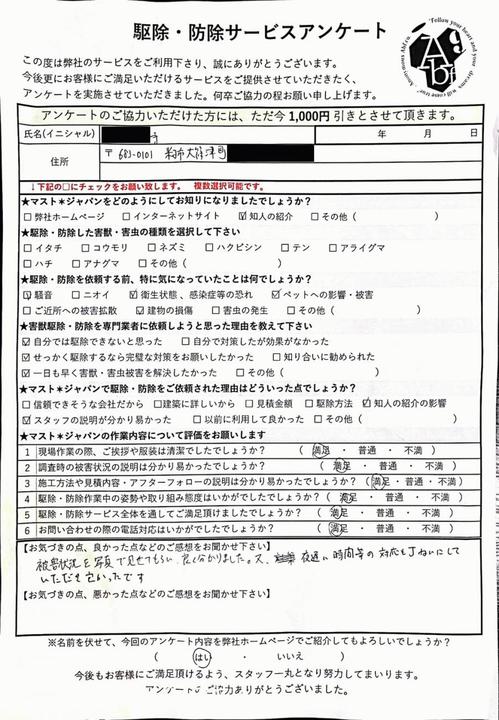 駆除・防除サービスアンケート
この度は弊社のサービスをご利用下さり、誠にありがとうございます。
今後更にお客様にご満足いただけるサービスをご提供させていただきたく、
アンケートを実施させていただきました。何卒ご協力の程お願い申し上げます。
アンケートのご協力いただけた方には、ただ今1,000円引きとさせて頂きます。
氏名(イニシャル) 年 月 日
住所 〒683-0101 米子市大篠津町
↓下記の□にチェックをお願い致します。 複数選択可能です。
★マスト＊ジャパンをどのようにしてお知りになりましたでしょうか？
□弊社ホームページ □インターネットサイト ☑知人の紹介 □その他( )
★駆除・防除した害獣・害虫の種類を選択して下さい
□イタチ □コウモリ □ネズミ □ハクビシン □テン □アライグマ
□ハチ □アナグマ □その他( )
★駆除・防除を依頼する前、特に気になっていたことは何でしょうか？
☑騒音 □ニオイ ☑衛生状態、感染症等の恐れ ☑ペットへの影響・被害
□ご近所への被害拡散 ☑建物の損傷 □害虫の発生 □その他( )
★害獣駆除・防除を専門業者に依頼しようと思った理由を教えて下さい
☑自分では駆除できないと思った □自分で対策したが効果がなかった
☑せっかく駆除するなら完璧な対策をお願いしたかった □知り合いに勧められた
☑一日も早く害獣・害虫被害を解決したかった □その他( )
★マスト＊ジャパンで駆除・防除をご依頼された理由はどういった点でしょうか？
□信頼できそうな会社だから □建築に詳しいから □見積金額 □駆除方法 ☑知人の紹介の影響
☑スタッフの説明が分かり易かった □以前に利用して良かった □その他( )
★マスト＊ジャパンの作業内容について評価をお願いします
1 現場作業の際、ご挨拶や服装は清潔でしたでしょうか？ ( 満足 ・ 普通 ・ 不満 )
2 調査時の被害状況の説明は分かり易かったでしょうか？ ( 満足 ・ 普通 ・ 不満 )
3 施工方法や見積内容・アフターフォローの説明は分かり易かったでしょうか？ ( 満足・普通・不満 )
4 駆除・防除作業中の姿勢や取り組み態度はいかがでしたでしょうか？ ( 満足 ・ 普通 ・ 不満 )
5 駆除・防除サービス全体を通してご満足頂けましたでしょうか？ ( 満足 ・ 普通 ・ 不満 )
6 お問い合わせの際の電話対応はいかがでしたでしょうか？ ( 満足 ・ 普通 ・ 不満 )
【お気づきの点、良かった点などのご感想をお聞かせ下さい】
被害状況を写真で見せてもらい、良く分かりました。又、夜遅い時間等の対応も丁ねいにして
いただき良かったです
【お気づきの点、悪かった点などのご感想をお聞かせ下さい】
※名前を伏せて、今回のアンケート内容を弊社ホームページでご紹介してもよろしいでしょうか？
( はい ・ いいえ )
今後もお客様にご満足頂けるよう、スタッフ一丸となり努力してまいります。
アンケートのご協力ありがとうございました。